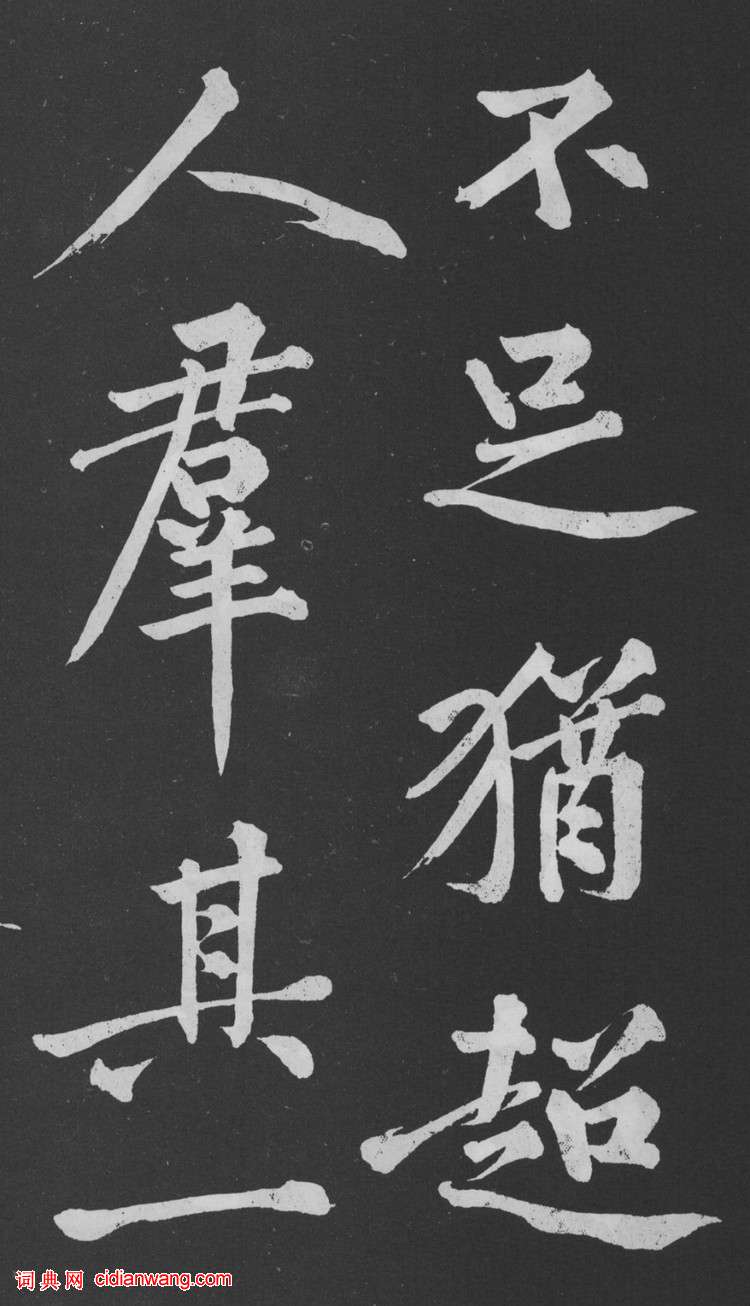 不足猶超
人羣其一
词典网 cidianwang.com